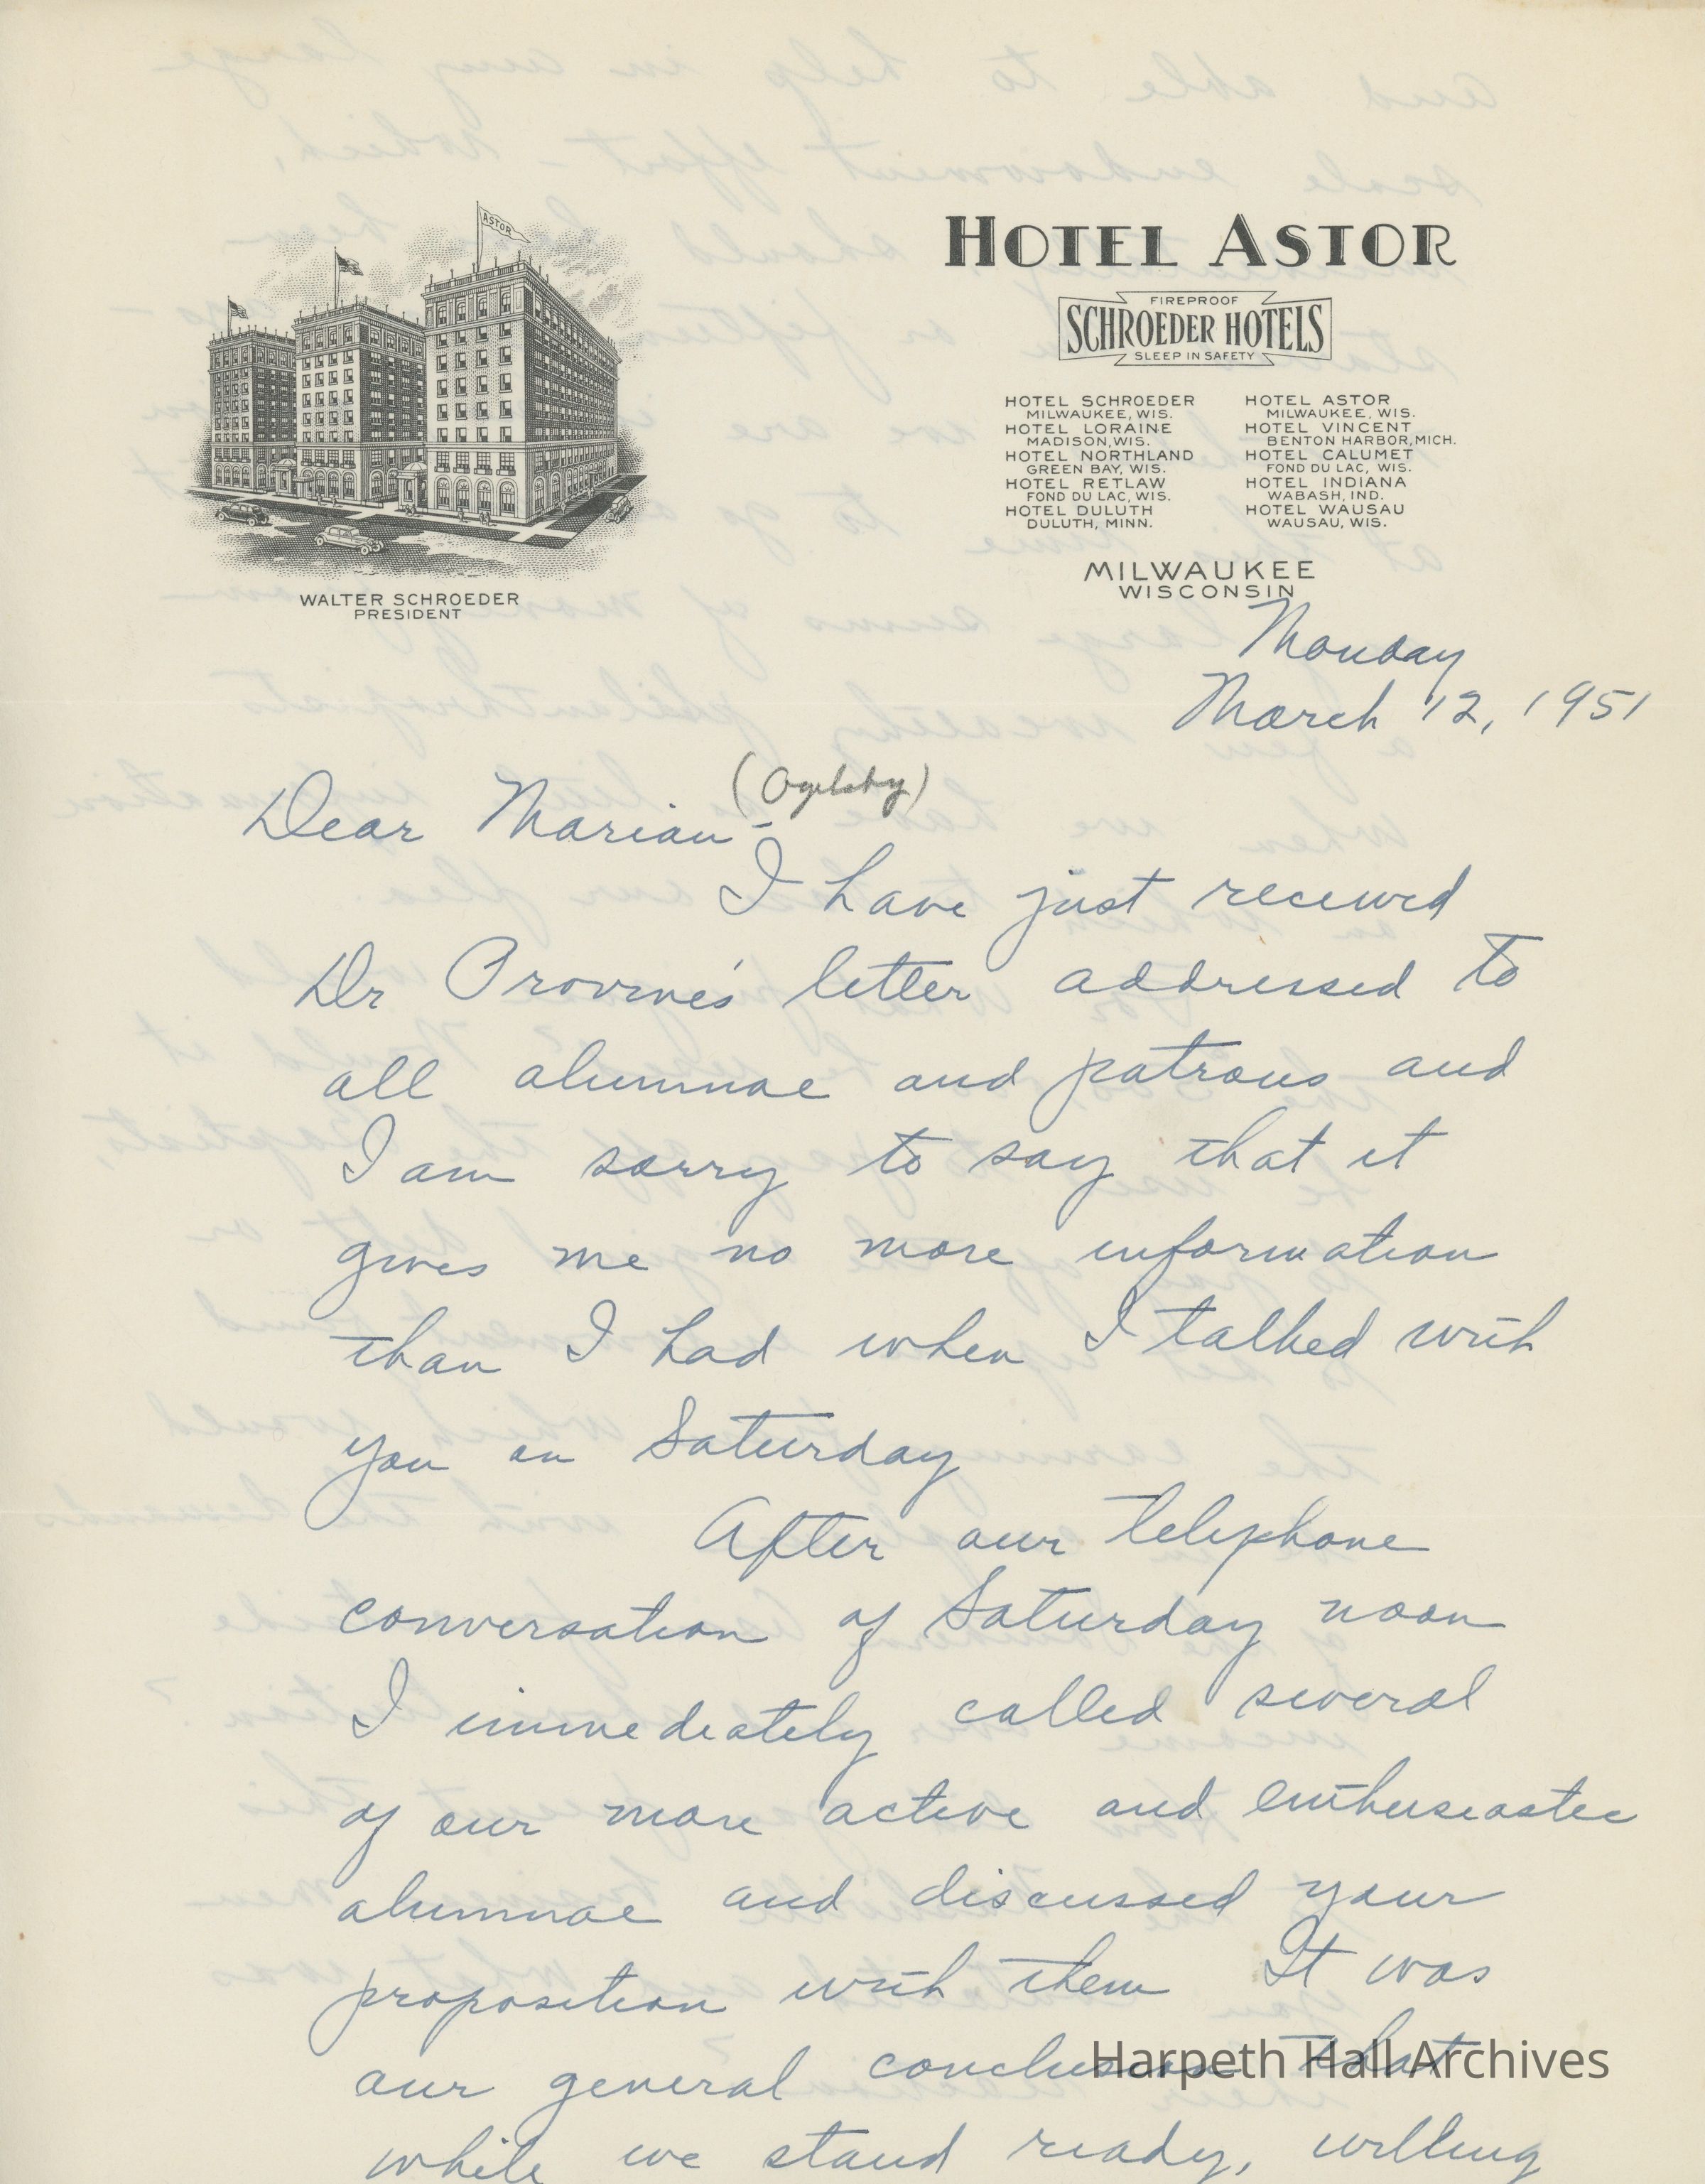 ASTOR
HOTEL ASTOR
FIREPROOF
SCHROEDER HOTELS
SLEEP IN SAFETY
HOTEL SCHROEDER
MILWAUKEE, WIS.
HOTEL LORAINE
MADISON, WIS.
HOTEL NORTHLAND
GREEN BAY, WIS.
HOTEL RETLAW
FOND DU LAC, WIS.
HOTEL DULUTH
DULUTH, MINN.
HOTEL ASTOR
MILWAUKEE, WIS.
HOTEL VINCENT
BENTON HARBOR, MICH.
HOTEL CALUMET
FOND DU LAC, WIS.
HOTEL INDIANA
WABASH, IND.
HOTEL WAUSAU
WAUSAU, WIS.
WALTER SCHROEDER
PRESIDENT
MILWAUKEE
WISCONSIN
Monday
March 12, 1951
(Ogilsby)
Dear Marian -
I have just received
Dr Provine's letter addressed to
all alumnae and patrons and
I am sorry to say that it
gives me no more information
than I had when I talked with
you on Saturday
After our telephone
conversation of Saturday noon
I immediately called several
of our more active and enthusiastic
alumnae and discussed your
proposition with them It was
our general conclusion that
while we stand ready, willing
Harpeth Hall Archives